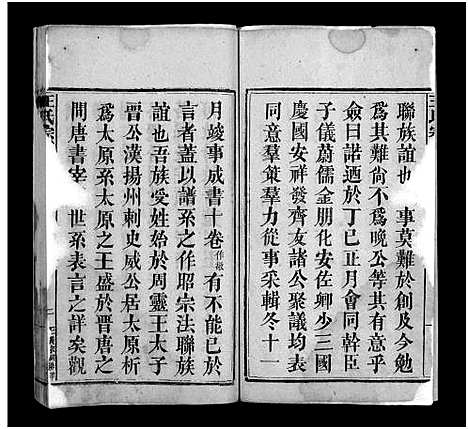 聯族誼也 事莫難於創及今勉
爲其難尚不爲晚公等其有意乎
僉曰諾迺於丁巳正月會同幹臣
子儀蔚儒金朋化安佐卿少三國
慶國安梓發齊友諸公聚議均表
同意羣策羣力從事采輯冬十一
王氏宗
月竣事成書十卷 有不能已於
言者蓋以譜系之作昭宗法聯族
誼也吾族受姓始於周靈王太子
晉公漢揚州刺史威公居太原析
爲太原系太原之王盛於晉唐之
間唐書宰 世系表言之詳矣觀